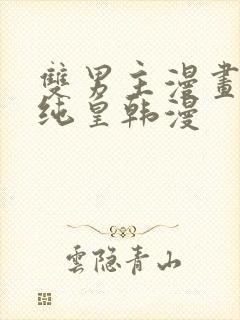 雙男主漫畫
纯皇韩漫
雲隐青山